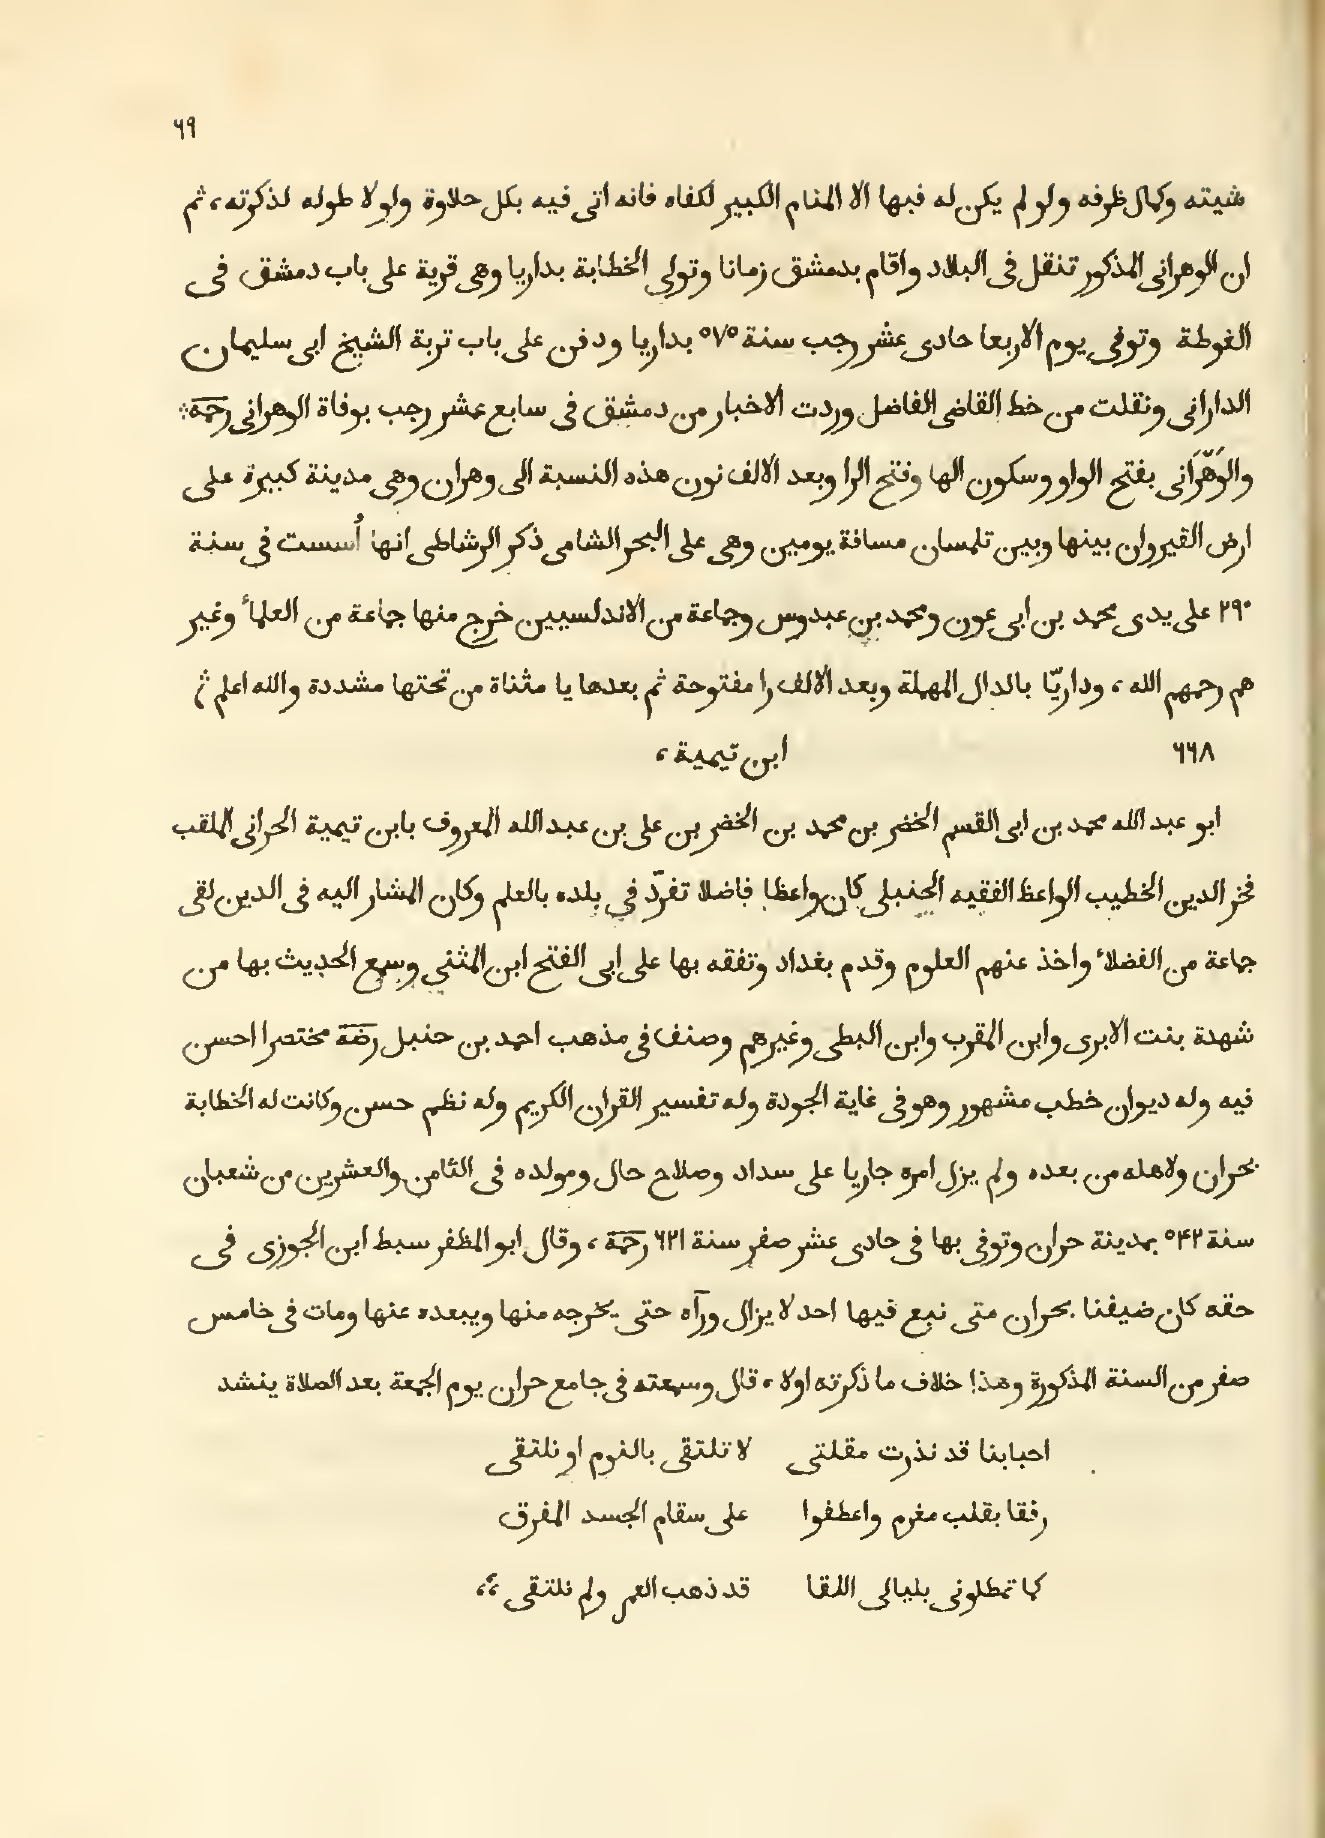 ٦٩
شيته وكمال ظرفه ولو لم يكن له فيها الا المنام الكبير لكفاه فانه اتى فيه بكل حلاوة ولولا طوله لذكرته، ثم
ان الوهرانى المذكور تنقل فى البلاد واقام بدمشق زمانا وتولى الخطابة بداريا وهى قرية على باب دمشق فى
الغوطة وتوفى يوم الاربعا حادى عشر رجب سنة ٥٧٥ بداريا ودفن على باب تربة الشيخ ابى سليمان
الدارانى ونقلت من خط القاضى الفاضل وردت الاخبار من دمشق فى سابع عشر رجب بوفاة الوهرانى رحمه
والوَهْرَانى بفتح الواو وسكون الها وفتح الرا وبعد الالف نون هذه النسبة الى وهران وهى مدينة كبيرة على
ارض القيروان بينها وبين تلمسان مسافة يومين وهى على البحر الشامى ذكر الرشاطى انها أُسست فى سنة
٢٩٠ على يدى محمد بن ابى عون ومحمد بن عبدوس وجماعة من الاندلسيين خرج منها جماعة من العلمآء وغير
هم رحمهم الله، وداريّا بالدال المهملة وبعد الالف را مفتوحة ثم بعدها يا مثناة من تحتها مشددة والله اعلم ثم
٦٦٨ ابن تيمية،
ابو عبد الله محمد بن ابى القسم الخضر بن محمد بن الخضر بن على بن عبد الله المعروف بابن تيمية الحرانى الملقب
فخر الدين الخطيب الواعظ الفقيه الحنبلى كان واعظا فاضلا تفرّد فى بلده بالعلم وكان المشار اليه فى الدين لقى
جماعة من الفضلاء واخذ عنهم العلوم وقدم بغداد وتفقه بها على ابى الفتح ابن المثنى وسمع الحديث بها من
شهدة بنت الابرى وابن المقرب وابن البطى وغيرهم وصنف فى مذهب احمد بن حنبل رضه مختصرا احسن
فيه وله ديوان خطب مشهور وهو فى غاية الجودة وله تفسير القران الكريم وله نظم حسن وكانت له الخطابة
بحران ولاهله من بعده ولم يزل امره جاريا على سداد وصلاح حال ومولده فى الثامن والعشرين من شعبان
سنة ٥٤٢ بمدينة حران وتوفى بها فى حادى عشر صفر سنة ٦٢١ رحمه، وقال ابو المظفر سبط ابن الجوزى فى
حقه كان ضيفنا بحران متى نبع فيها احد لا يزال ورآه حتى يخرجه منها ويبعده عنها ومات فى خامس
صفر من السنة المذكورة وهذا خلاف ما ذكرته اولا، قال وسمعته فى جامع حران يوم الجمعة بعد الصلاة ينشد
احبابنا قد نذرت مقلتى لا تلتقى بالنوم او نلتقى
رفقا بقلب مغرم واعطفوا على سقام الجسد المفرق
كما تمطلونى بليالى اللقا قد ذهب العمر ولم نلتقى،،